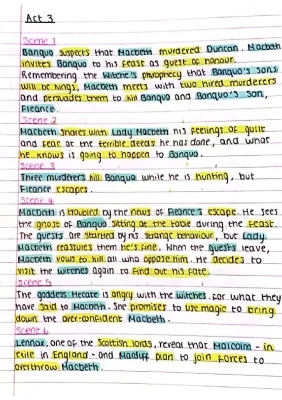 Act 3
Scene 1
Banquo suspects that Macbeth murdered Duncan. Macbeth
invites Banquo to his feast as guest of honour.
Remembering the Witche's prophecy that Banquo's sons
will be kings, Macbeth meets with two hired murderers
and persuades them to kill Banquo and Banquo's Son,
Fleance.
Scene 2
Macbeth shares with Lady Macbeth his feelings of guilt
and fear at the terrible deeds he has done, and what
he knows is going to happen to Banquo.
Scene 3
Three murderers kill Banquo while he is hunting, but
Fleance escapes.
Scene 4
Macbeth is troubled by the news of Fleance's escape. He sees
the ghost of Banquo sitting at the table during the feast.
The guests are startled by his strange behaviour, but Lady
Macbeth reassures them he's fine. When the guests leave,
Macbeth vows to kill all who oppose him. He decides to
visit the witches again to find out his fate.
Scene 5
The goddess Hecate is angry with the witches for what they
have said to Macbeth. She promises to use magic to bring
down the over-confident Macbeth.
Scene 6
Lennox, one of the Scottish lords, reveal that Malcolm - in
exile in England - and Macduff plan to join forces to
overthrow Macbeth.